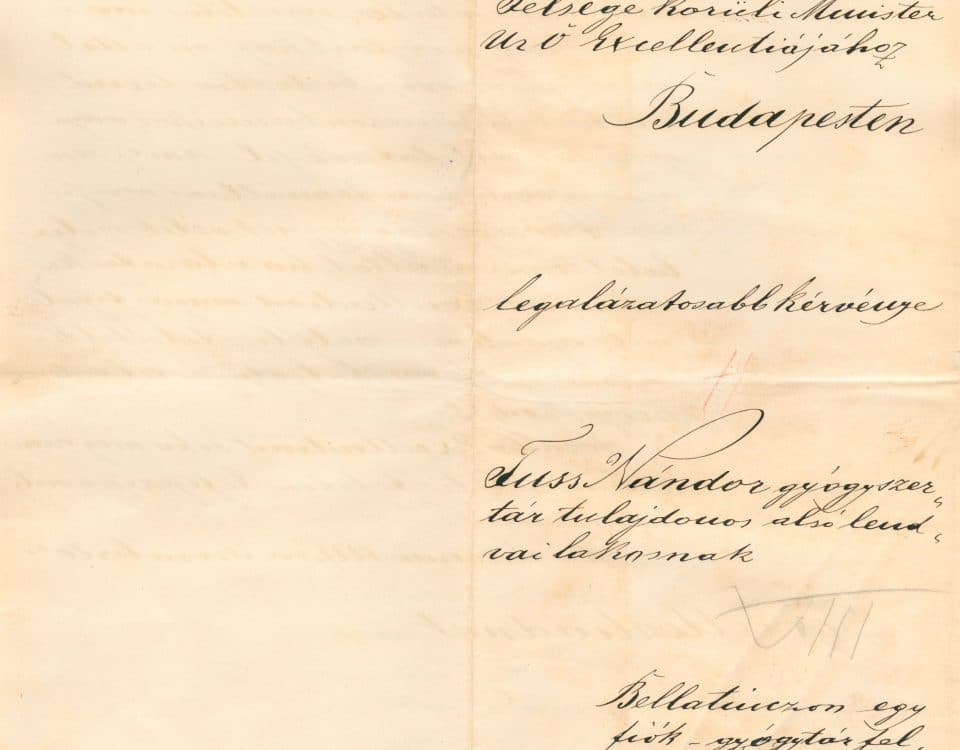 Felsége Körüli Minister
Ur Ő Excellentiájához
Budapesten
legalázatosabb kérvénye
Fuss Nándor gyógyszer„
tár tulajdonos alsó lend„
vai lakosnak
VIII
Bellatinczon egy
fiók-gyógytár fel„